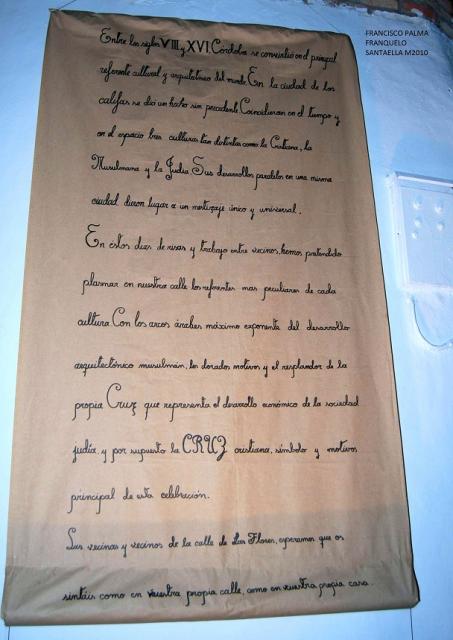 FRANCISCO PALMA
FRANQUELO
SANTAELLA M2010
Entre los siglos VIII y XVI. Córdoba se convirtió en el principal
referente cultural y arquitectónico del mundo. En la ciudad de los
califas se dio un hecho sin precedente. Coincidieron en el tiempo y
en el espacio tres culturas tan distintas como la Cristiana, la
Musulmana y la Judía. Sus desarrollos paralelos en una misma
ciudad dieron lugar a un mestizaje único y universal.
En éstos días de risas y trabajo entre vecinos, hemos pretendido
plasmar en nuestra calle los referentes mas peculiares de cada
cultura. Con los arcos árabes máximo exponente del desarrollo
arquitectónico musulmán, los dorados motivos y el resplandor de la
propia Cruz que representa el desarrollo económico de la sociedad
judía, y por supuesto la CRUZ cristiana, símbolo y motivos
principal de esta celebración.
Las vecinas y vecinos de la calle de Las Flores, esperamos que os
sintáis como en vuestra propia calle, como en vuestra propia casa.